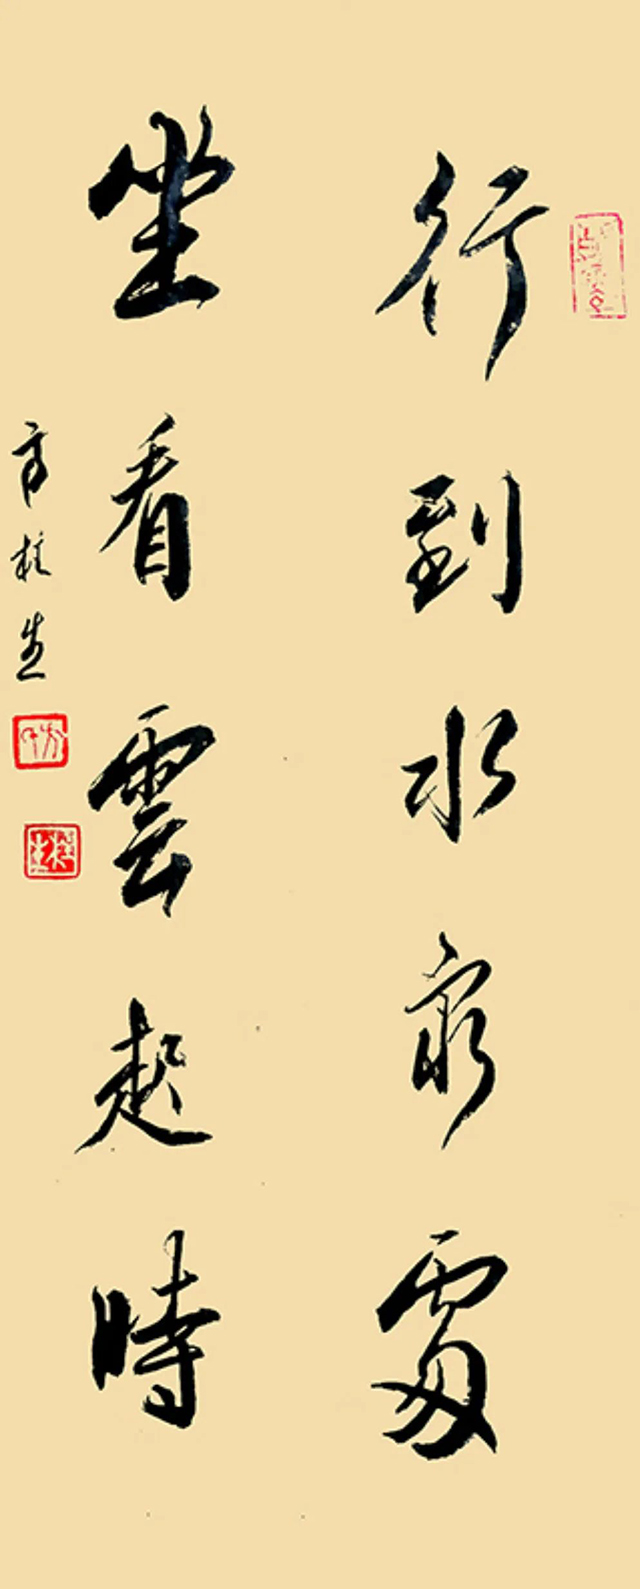 行到水穷處
坐看雲起時
方桂生